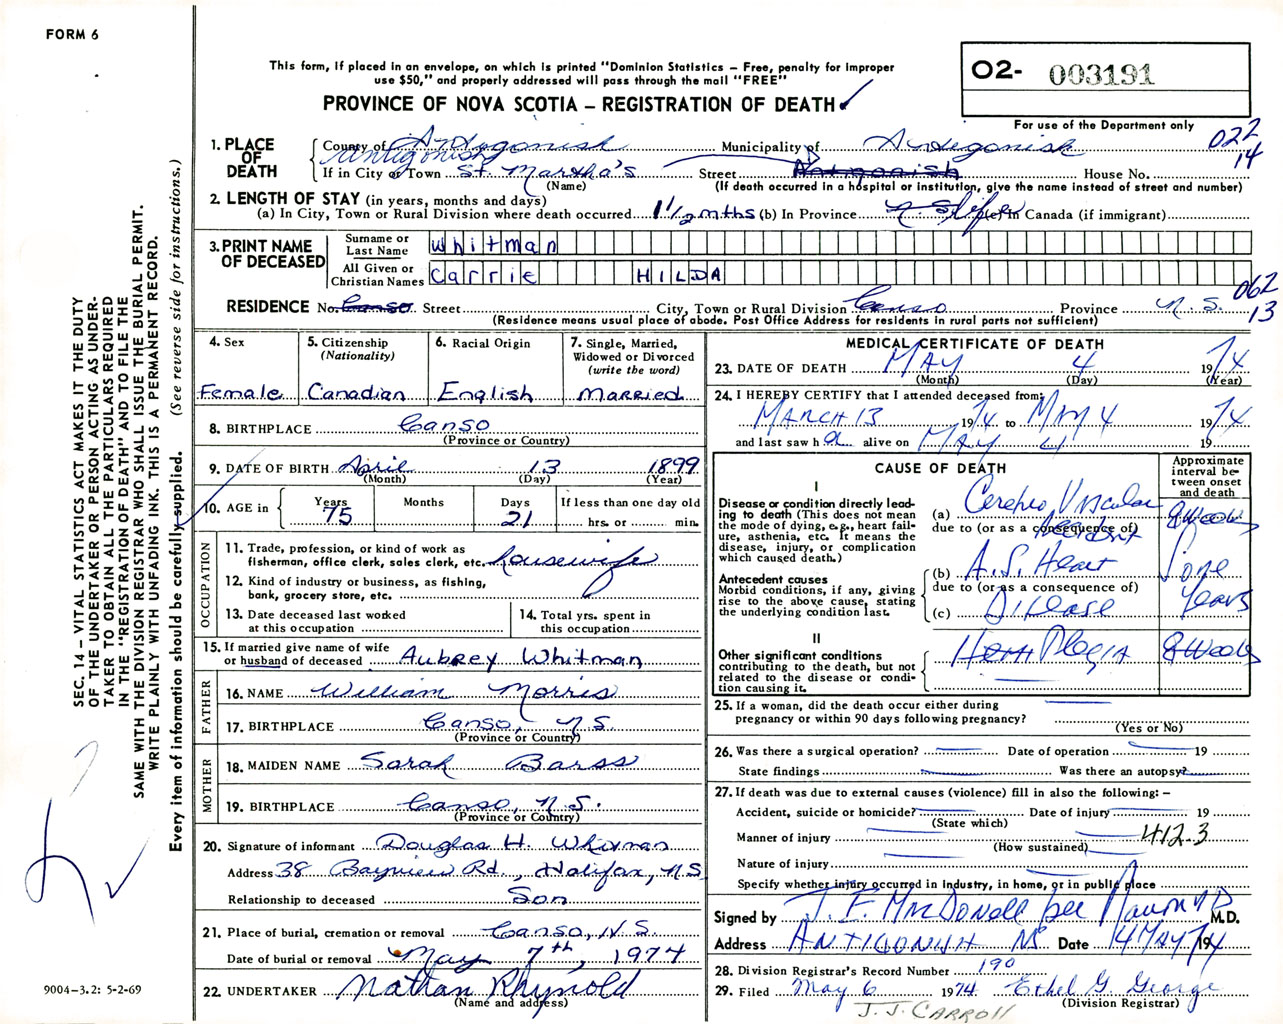 FORM 6
This form, if placed in an envelope, on which is printed "Dominion Statistics – Free, penalty for improper
use $50," and properly addressed will pass through the mail "FREE"
PROVINCE OF NOVA SCOTIA – REGISTRATION OF DEATH
O2- 003191
For use of the Department only
022
14
1. PLACE OF DEATH
County of Antigonish Municipality of Antigonish
Antigonish
If in City or Town St. Martha's Street House No.
(Name) (If death occurred in a hospital or institution, give the name instead of street and number)
2. LENGTH OF STAY (in years, months and days)
(a) In City, Town or Rural Division where death occurred 1 1/2 mths (b) In Province life (c) In Canada (if immigrant)
3. PRINT NAME OF DECEASED
Surname or Last Name Whitman
All Given or Christian Names Carrie HILDA
062
13
RESIDENCE No. Canso Street City, Town or Rural Division Canso Province N.S.
(Residence means usual place of abode. Post Office Address for residents in rural parts not sufficient)
4. Sex Female
5. Citizenship (Nationality) Canadian
6. Racial Origin English
7. Single, Married, Widowed or Divorced (write the word) Married
8. BIRTHPLACE Canso
(Province or Country)
9. DATE OF BIRTH April 13 1899
(Month) (Day) (Year)
10. AGE in Years 75 Months Days 21 If less than one day old hrs. or min.
OCCUPATION
11. Trade, profession, or kind of work as
fisherman, office clerk, sales clerk, etc. housewife
12. Kind of industry or business, as fishing,
bank, grocery store, etc.
13. Date deceased last worked
at this occupation
14. Total yrs. spent in
this occupation
15. If married give name of wife
or husband of deceased Aubrey Whitman
FATHER
16. NAME William Morris
17. BIRTHPLACE Canso, N.S.
(Province or Country)
MOTHER
18. MAIDEN NAME Sarah Barss
19. BIRTHPLACE Canso, N.S.
(Province or Country)
20. Signature of informant Douglas H. Whitman
Address 38 Bayview Rd., Halifax, N.S.
Relationship to deceased Son
21. Place of burial, cremation or removal Canso, N.S.
Date of burial or removal May 7th, 1974
22. UNDERTAKER Nathan Rhynold
(Name and address)
MEDICAL CERTIFICATE OF DEATH
23. DATE OF DEATH MAY 4 1974
(Month) (Day) (Year)
24. I HEREBY CERTIFY that I attended deceased from:
MARCH 13 1974 to MAY 4 1974
and last saw h alive on MAY 4 19
CAUSE OF DEATH
Approximate interval between onset and death
I
Disease or condition directly leading to death (This does not mean the mode of dying, e.g., heart failure, asthenia, etc. It means the disease, injury, or complication which caused death.)
(a) Cerebro Vascular 8 Weeks
due to (or as a consequence of)
Accident
Antecedent causes
Morbid conditions, if any, giving rise to the above cause, stating the underlying condition last.
(b) A.S. Heart Some
due to (or as a consequence of)
(c) Disease Years
II
Other significant conditions
contributing to the death, but not related to the disease or condition causing it.
Hemi Plegia 8 Weeks
25. If a woman, did the death occur either during
pregnancy or within 90 days following pregnancy?
(Yes or No)
26. Was there a surgical operation? Date of operation 19
State findings Was there an autopsy?
27. If death was due to external causes (violence) fill in also the following: –
Accident, suicide or homicide? Date of injury 19
(State which)
Manner of injury 412.3
(How sustained)
Nature of injury
Specify whether injury occurred in Industry, in home, or in public place
Signed by J. F. MacDonell per M.D.
Address ANTIGONISH NS Date 14 MAY 1974
28. Division Registrar's Record Number 190
29. Filed May 6 1974 Ethel G. George
(Division Registrar)
J. J. CARROLL
SEC. 14 – VITAL STATISTICS ACT MAKES IT THE DUTY
OF THE UNDERTAKER OR PERSON ACTING AS UNDER-
TAKER TO OBTAIN ALL THE PARTICULARS REQUIRED
IN THE "REGISTRATION OF DEATH" AND TO FILE THE
SAME WITH THE DIVISION REGISTRAR WHO SHALL ISSUE THE BURIAL PERMIT.
WRITE PLAINLY WITH UNFADING INK. THIS IS A PERMANENT RECORD.
Every item of information should be carefully supplied. (See reverse side for instructions.)
9004-3.2: 5-2-69